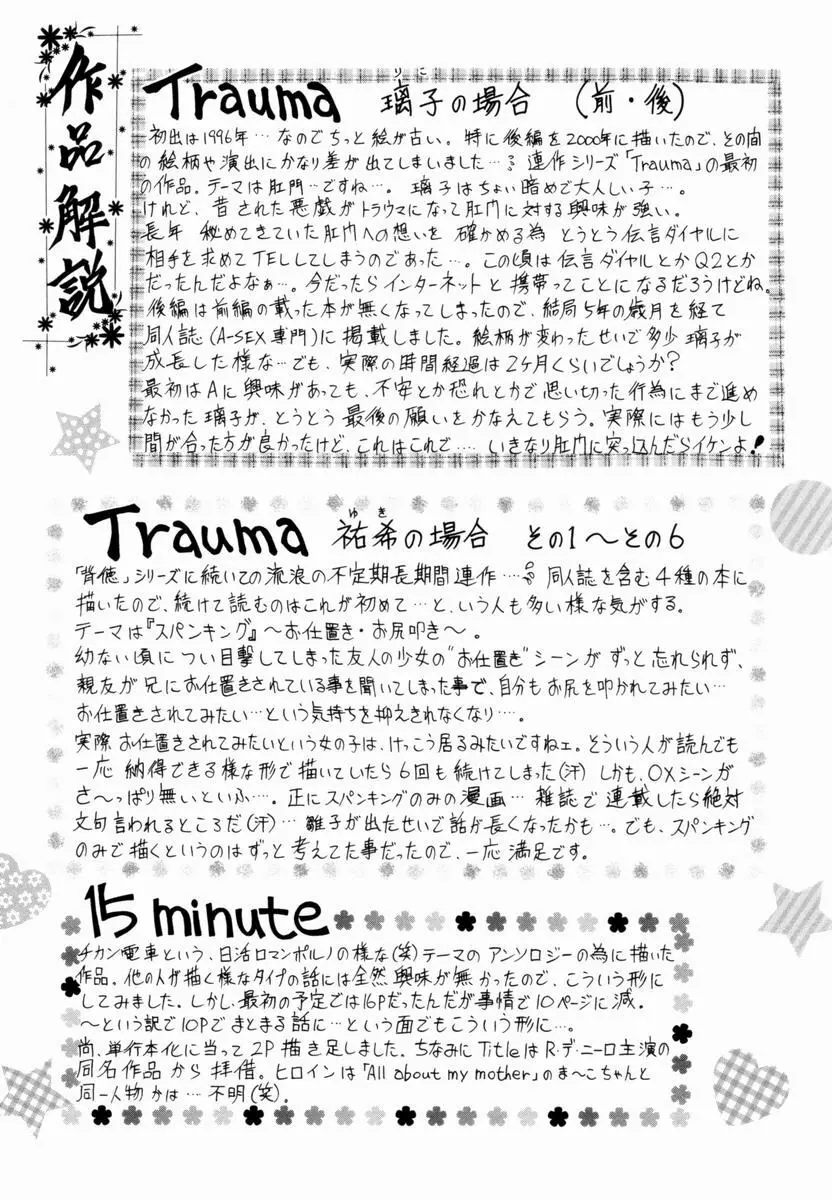 作品解説
Trauma 璃子の場合 (前・後)
りこ
初出は1996年…なのでちっと絵が古い。特に後編を2000年に描いたので、その間
の絵柄や演出にかなり差が出てしまいました…。連作シリーズ「Trauma」の最初
の作品。テーマは肛門…ですね…。璃子はちょい暗めで大人しい子…。
けれど、昔された悪戯がトラウマになって肛門に対する興味が強い。
長年 秘めてきていた肛門への想いを 確かめる為 とうとう伝言ダイヤルに
相手を求めてTELしてしまうのであった…。この頃は伝言ダイヤルとかQ2とか
だったんだよなぁ…。今だったらインターネットと携帯ってことになるだろうけどね。
後編は前編の載った本が無くなってしまったので、結局5年の歳月を経て
同人誌(A-SEX専門)に掲載しました。絵柄が変わったせいで多少璃子が
成長した様な…でも、実際の時間経過は2ヶ月くらいでしょうか?
最初はAに興味があっても、不安とか恐れとかで思い切った行為にまで進め
なかった璃子が、とうとう最後の願いをかなえてもらう。実際にはもう少し
間が合った方が良かったけど、これはこれで…。いきなり肛門に突っ込んだらイケンよ!
Trauma 祐希の場合 その1〜その6
ゆき
「背徳」シリーズに続いての流浪の不定期長期間連作…。同人誌を含む4種の本に
描いたので、続けて読むのはこれが初めて…と、いう人も多い様な気がする。
テーマは『スパンキング』〜お仕置き・お尻叩き〜。
幼ない頃につい目撃してしまった友人の少女の"お仕置き"シーンがずっと忘れられず、
親友が兄にお仕置きされている事を聞いてしまった事で、自分もお尻を叩かれてみたい…
お仕置きされてみたい…という気持ちを抑えきれなくなり…。
実際お仕置きされてみたいという女の子は、けっこう居るみたいですねェ。そういう人が読んでも
一応 納得できる様な形で描いていたら6回も続けてしまった(汗)しかも、OXシーンが
さ〜っぱり無いといふ…。正にスパンキングのみの漫画…雑誌で連載したら絶対
文句言われるところだ(汗)…雛子が出たせいで話が長くなったかも…。でも、スパンキング
のみで描くというのはずっと考えてた事だったので、一応満足です。
15 minute
チカン電車という、日活ロマンポルノの様な(笑)テーマのアンソロジーの為に描いた
作品。他の人が描く様なタイプの話には全然興味が無かったので、こういう形に
してみました。しかし、最初の予定では16Pだったんだが事情で10ページに減。
〜という訳で10Pでまとまる話に…という面でもこういう形に…。
尚、単行本化に当って2P描き足しました。ちなみにTitleはR・デ・ニーロ主演の
同名作品から拝借。ヒロインは「All about my mother」のま〜こちゃんと
同一人物かは…不明(笑)。